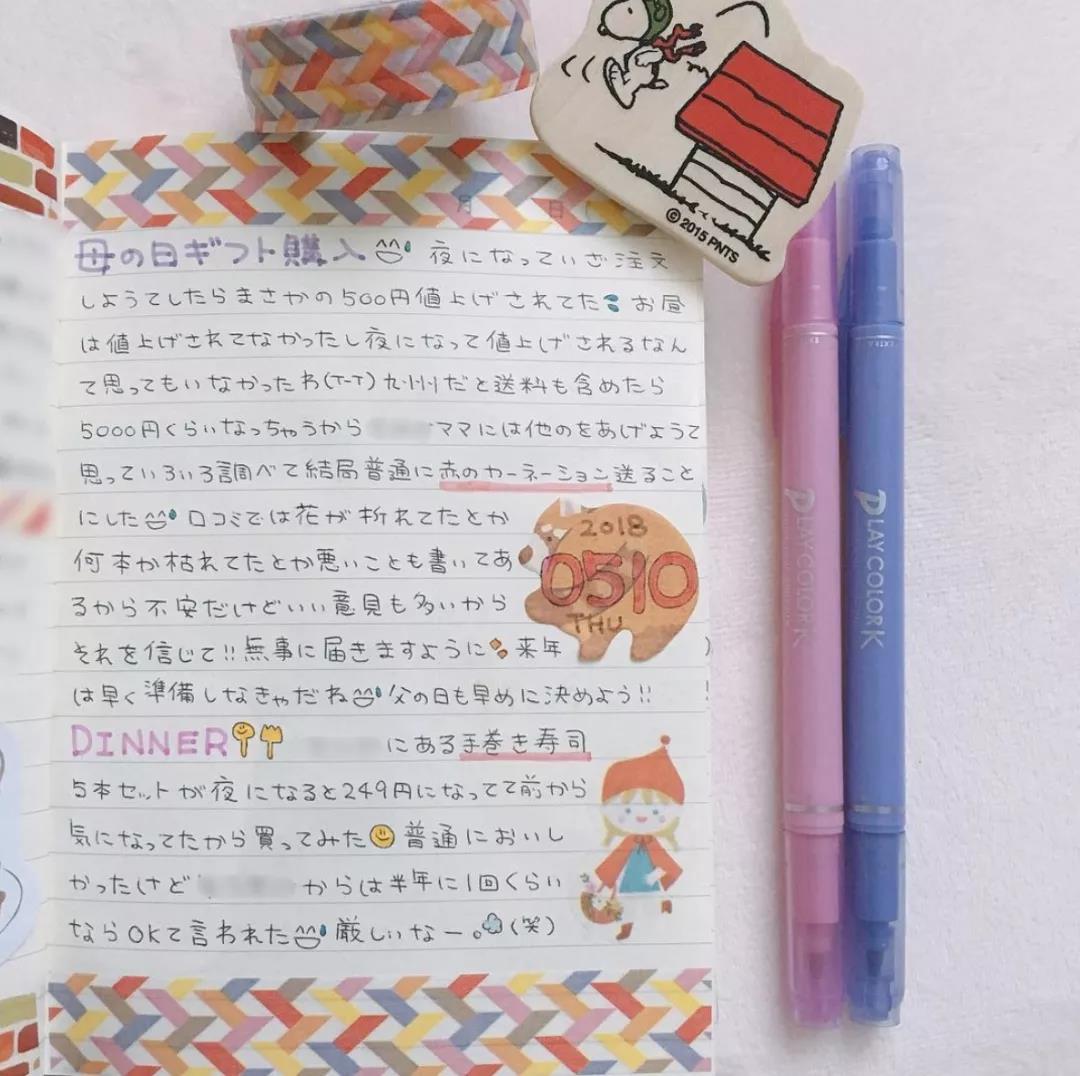 月 日
© 2015 PNTS
母の日ギフト購入 夜になっていざ注文
しようてしたらまさかの500円値上げされてた お昼
は値上げされてなかったし夜になって値上げされるなん
て思ってもいなかったわ(T-T) 九州だと送料も含めたら
5000円くらいなっちゃうから ママには他のをあげようて
思っていろいろ調べて結局普通に赤のカーネーション送ること
にした 口コミでは花が折れてたとか
何本か枯れてたとか悪いことも書いてあ
るから不安だけどいい意見も多いから
それを信じて!!無事に届きますように 来年
は早く準備しなきゃだね 父の日も早めに決めよう!!
2018
0510
THU
DINNER にある手巻き寿司
5本セットが夜になると249円になってて前から
気になってたから買ってみた 普通においし
かったけど からは半年に1回くらい
ならOKて言われた 厳しいなー。(笑)
PLAYCOLOR K
PLAYCOLOR K
EXTRA